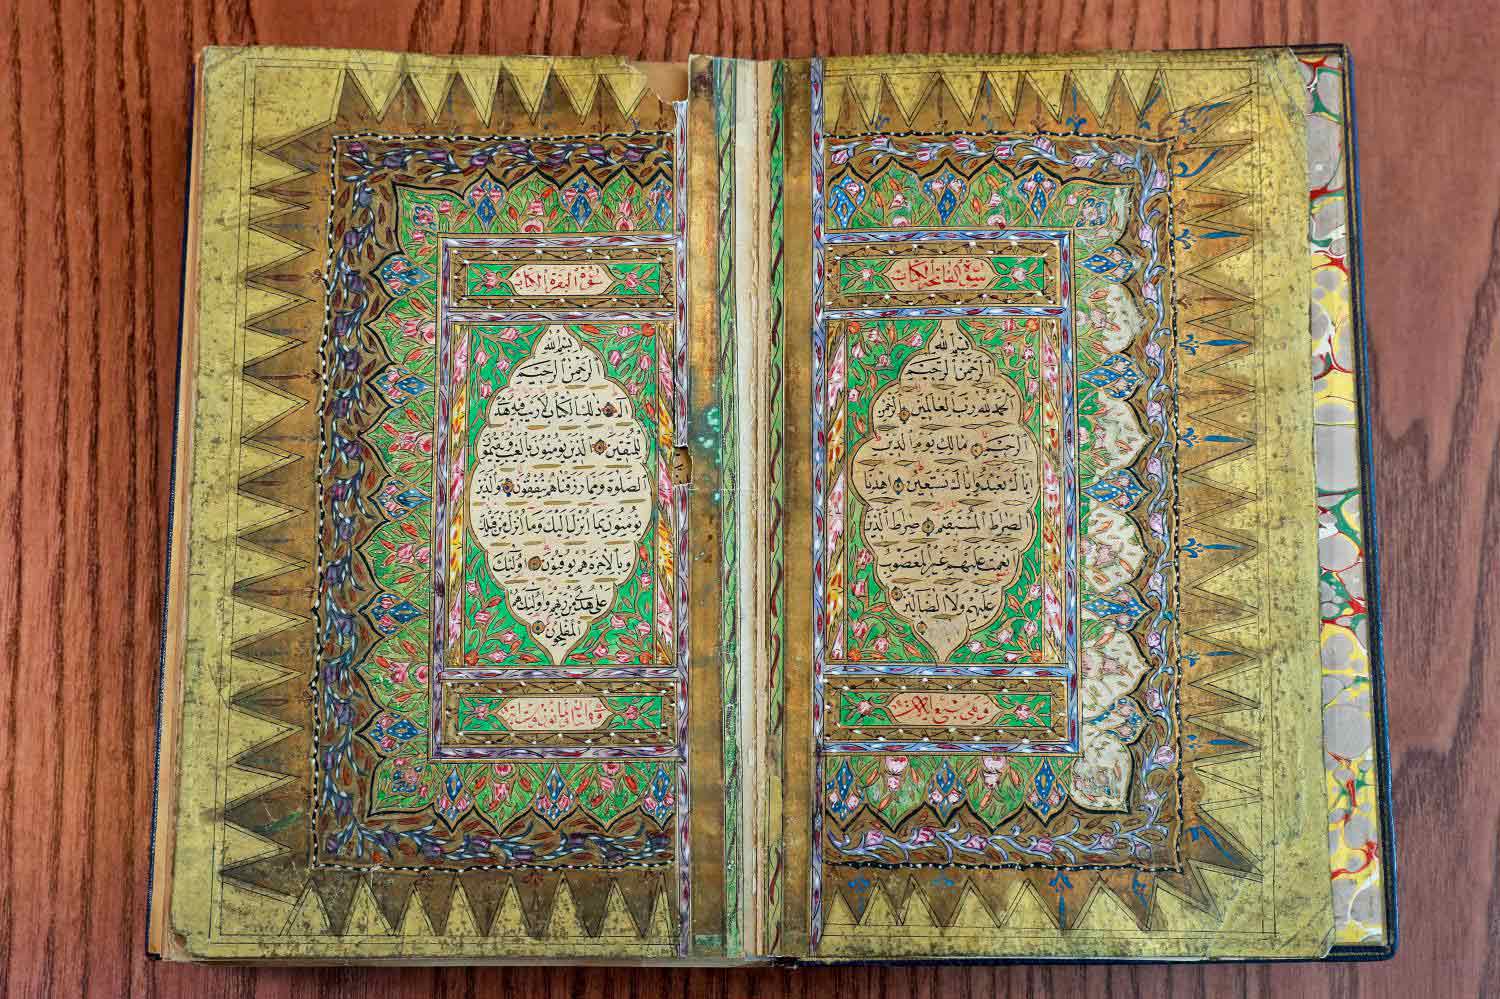 سورة الفاتحة الكتاب
بِسْمِ اللهِ
الرَّحْمٰنِ الرَّحِيمِ
اَلْحَمْدُ لِلّٰهِ رَبِّ الْعَالَمِينَ الرَّحْمٰنِ
الرَّحِيمِ مَالِكِ يَوْمِ الدِّينِ
اِيَّاكَ نَعْبُدُ وَاِيَّاكَ نَسْتَعِينُ اِهْدِنَا
الصِّرَاطَ الْمُسْتَقِيمَ صِرَاطَ الَّذِينَ
اَنْعَمْتَ عَلَيْهِمْ غَيْرِ الْمَغْضُوبِ
عَلَيْهِمْ وَلَا الضَّالِّينَ
وهي سبع الايات
سورة البقرة الكتاب
بِسْمِ اللهِ
الرَّحْمٰنِ الرَّحِيمِ
الٓمٓ ذٰلِكَ الْكِتَابُ لَا رَيْبَ فِيهِ هُدًى
لِلْمُتَّقِينَ اَلَّذِينَ يُؤْمِنُونَ بِالْغَيْبِ وَيُقِيمُونَ
الصَّلٰوةَ وَمِمَّا رَزَقْنَاهُمْ يُنْفِقُونَ وَالَّذِينَ
يُؤْمِنُونَ بِمَا اُنْزِلَ اِلَيْكَ وَمَا اُنْزِلَ مِنْ قَبْلِكَ
وَبِالْاٰخِرَةِ هُمْ يُوقِنُونَ اُولٰٓئِكَ
عَلٰى هُدًى مِنْ رَبِّهِمْ وَاُولٰٓئِكَ هُمُ
الْمُفْلِحُونَ